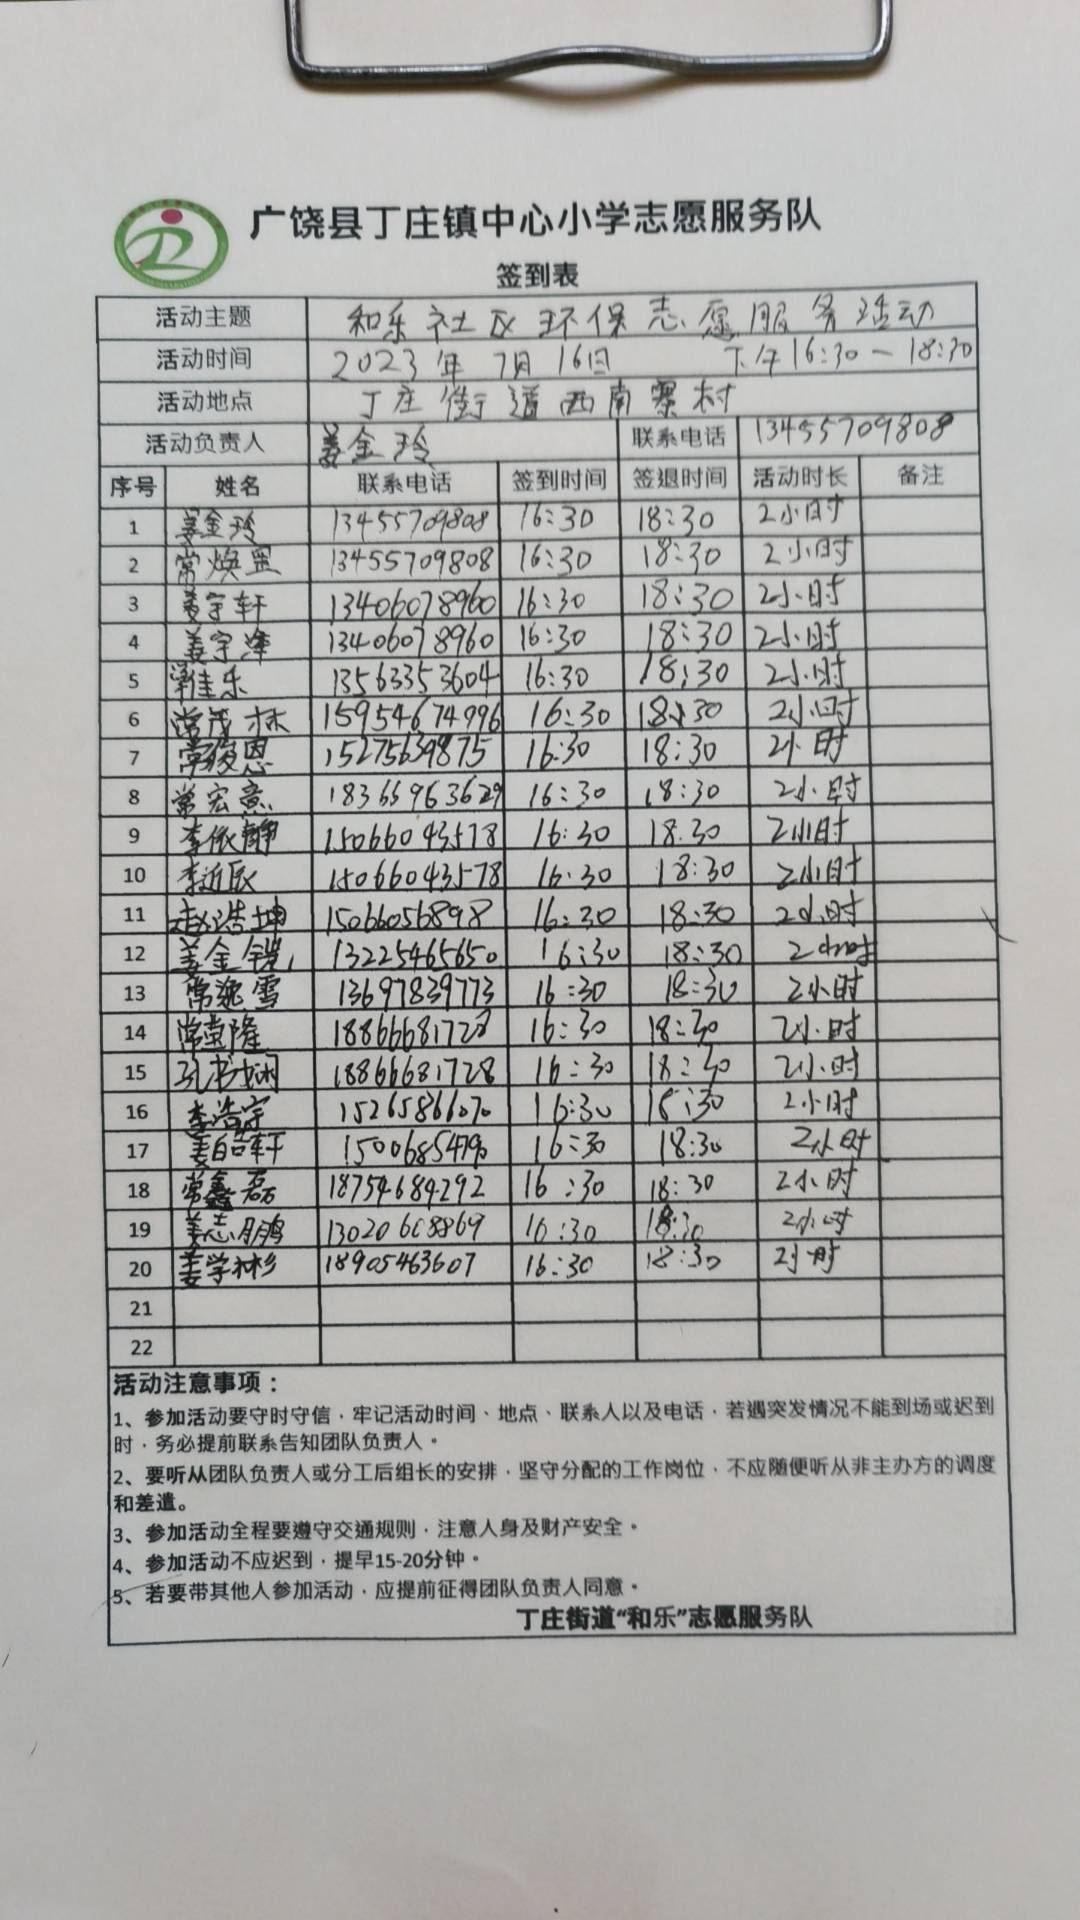 广饶县丁庄镇中心小学志愿服务队
签到表
活动主题 和乐社区环保志愿服务活动
活动时间 2023年7月16日 下午16:30-18:30
活动地点 丁庄街道西南寨村
活动负责人 姜金玲 联系电话 13455709808
序号 姓名 联系电话 签到时间 签退时间 活动时长 备注
1 姜金玲 13455709808 16:30 18:30 2小时
2 常焕 13455709808 16:30 18:30 2小时
3 姜宇轩 13406078960 16:30 18:30 2小时
4 姜宇泽 13406078960 16:30 18:30 2小时
5 佳乐 13563353604 16:30 18:30 2小时
6 常茂林 15954674996 16:30 18:30 2小时
7 常俊恩 15275639875 16:30 18:30 2小时
8 常宏意 18366963629 16:30 18:30 2小时
9 李依静 15066043578 16:30 18:30 2小时
10 李近辰 15066043578 16:30 18:30 2小时
11 赵浩坤 15066056898 16:30 18:30 2小时
12 姜金铠 13225465650 16:30 18:30 2小时
13 常逸雪 13697839773 16:30 18:30 2小时
14 常堂隆 18866681728 16:30 18:30 2小时
15 孔书娴 18866681728 16:30 18:30 2小时
16 李浩宇 15265866070 16:30 18:30 2小时
17 姜皓轩 15006854790 16:30 18:30 2小时
18 常鑫磊 18754684292 16:30 18:30 2小时
19 姜志鹏 13020608869 16:30 18:30 2小时
20 姜学彬 18905463607 16:30 18:30 2小时
21
22
活动注意事项：
1、参加活动要守时守信，牢记活动时间、地点、联系人以及电话，若遇突发情况不能到场或迟到
时，务必提前联系告知团队负责人。
2、要听从团队负责人或分工后组长的安排，坚守分配的工作岗位，不应随便听从非主办方的调度
和差遣。
3、参加活动全程要遵守交通规则，注意人身及财产安全。
4、参加活动不应迟到，提早15-20分钟。
5、若要带其他人参加活动，应提前征得团队负责人同意。
丁庄街道“和乐”志愿服务队